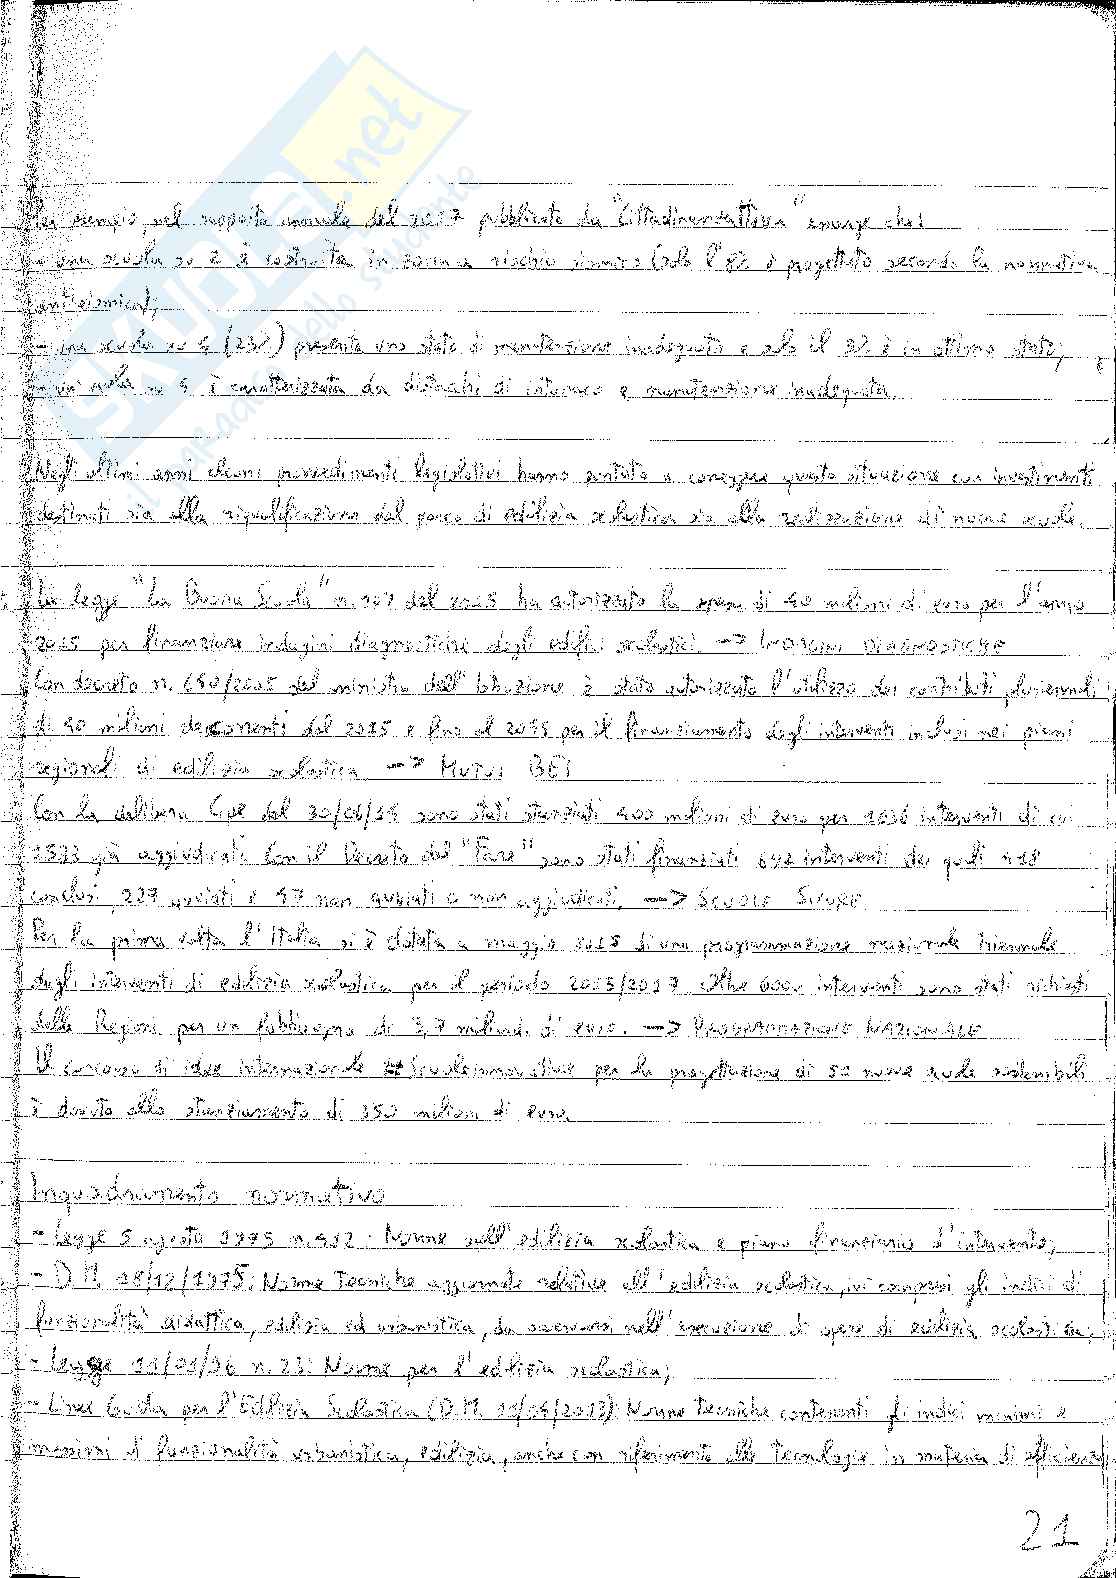 Per esempio, nel rapporto annuale del 2017 pubblicato da "Cittadinanzattiva" emerge che:
- una scuola su 2 è costruita in zona a rischio sismico (solo l'8% è progettato secondo la normativa
antisismica);
- una scuola su 4 (23%) presenta uno stato di manutenzione inadeguato e solo il 3% è in ottimo stato;
- un'aula su 5 è caratterizzata da distacchi di intonaco e manutenzione inadeguata.
Negli ultimi anni alcuni provvedimenti legislativi hanno aiutato a correggere questa situazione con investimenti
destinati sia alla riqualificazione del parco di edilizia scolastica sia alla realizzazione di nuove scuole.
La legge "La Buona Scuola" n.107 del 2015 ha autorizzato la spesa di 40 milioni di euro per l'anno
2015 per finanziare indagini diagnostiche degli edifici scolastici. --> INDAGINI DIAGNOSTICHE
Con decreto n. 640/2015 del ministro dell'Istruzione è stato autorizzato l'utilizzo dei contributi pluriennali
di 40 milioni decorrenti dal 2015 e fino al 2045 per il finanziamento degli interventi inclusi nei piani
regionali di edilizia scolastica --> MUTUI BEI
Con la delibera Cipe del 30/06/14 sono stati stanziati 400 milioni di euro per 1636 interventi di cui
1533 già aggiudicati. Con il Decreto del "Fare" sono stati finanziati 692 interventi dei quali 418
conclusi, 227 avviati e 47 non avviati o non aggiudicati. --> SCUOLE SICURE
Per la prima volta l'Italia si è dotata a maggio 2015 di una programmazione nazionale triennale
degli interventi di edilizia scolastica per il periodo 2015/2017. Oltre 6000 interventi sono stati richiesti
dalle Regioni per un fabbisogno di 3,7 miliardi di euro. --> PROGRAMMAZIONE NAZIONALE
Il concorso di idee internazionale #Scuoleinnovative per la progettazione di 50 nuove scuole sostenibili
è dovuto allo stanziamento di 350 milioni di euro.
Inquadramento normativo
- Legge 5 agosto 1975 n.412: Norme sull'edilizia scolastica e piano finanziario d'intervento;
- D.M. 18/12/1975: Norme Tecniche aggiornate relative all'edilizia scolastica, ivi compresi gli indici di
funzionalità didattica, edilizia ed urbanistica, da osservarsi nell'esecuzione di opere di edilizia scolastica;
- Legge 11/01/96 n.23: Norme per l'edilizia scolastica;
- Linee Guida per l'Edilizia Scolastica (D.M. 11/04/2013): Norme Tecniche contenenti gli indici minimi e
massimi di funzionalità urbanistica, edilizia, anche con riferimento alle tecnologie in materia di efficienza
21
SKUOLA.net
il paradiso dello studente